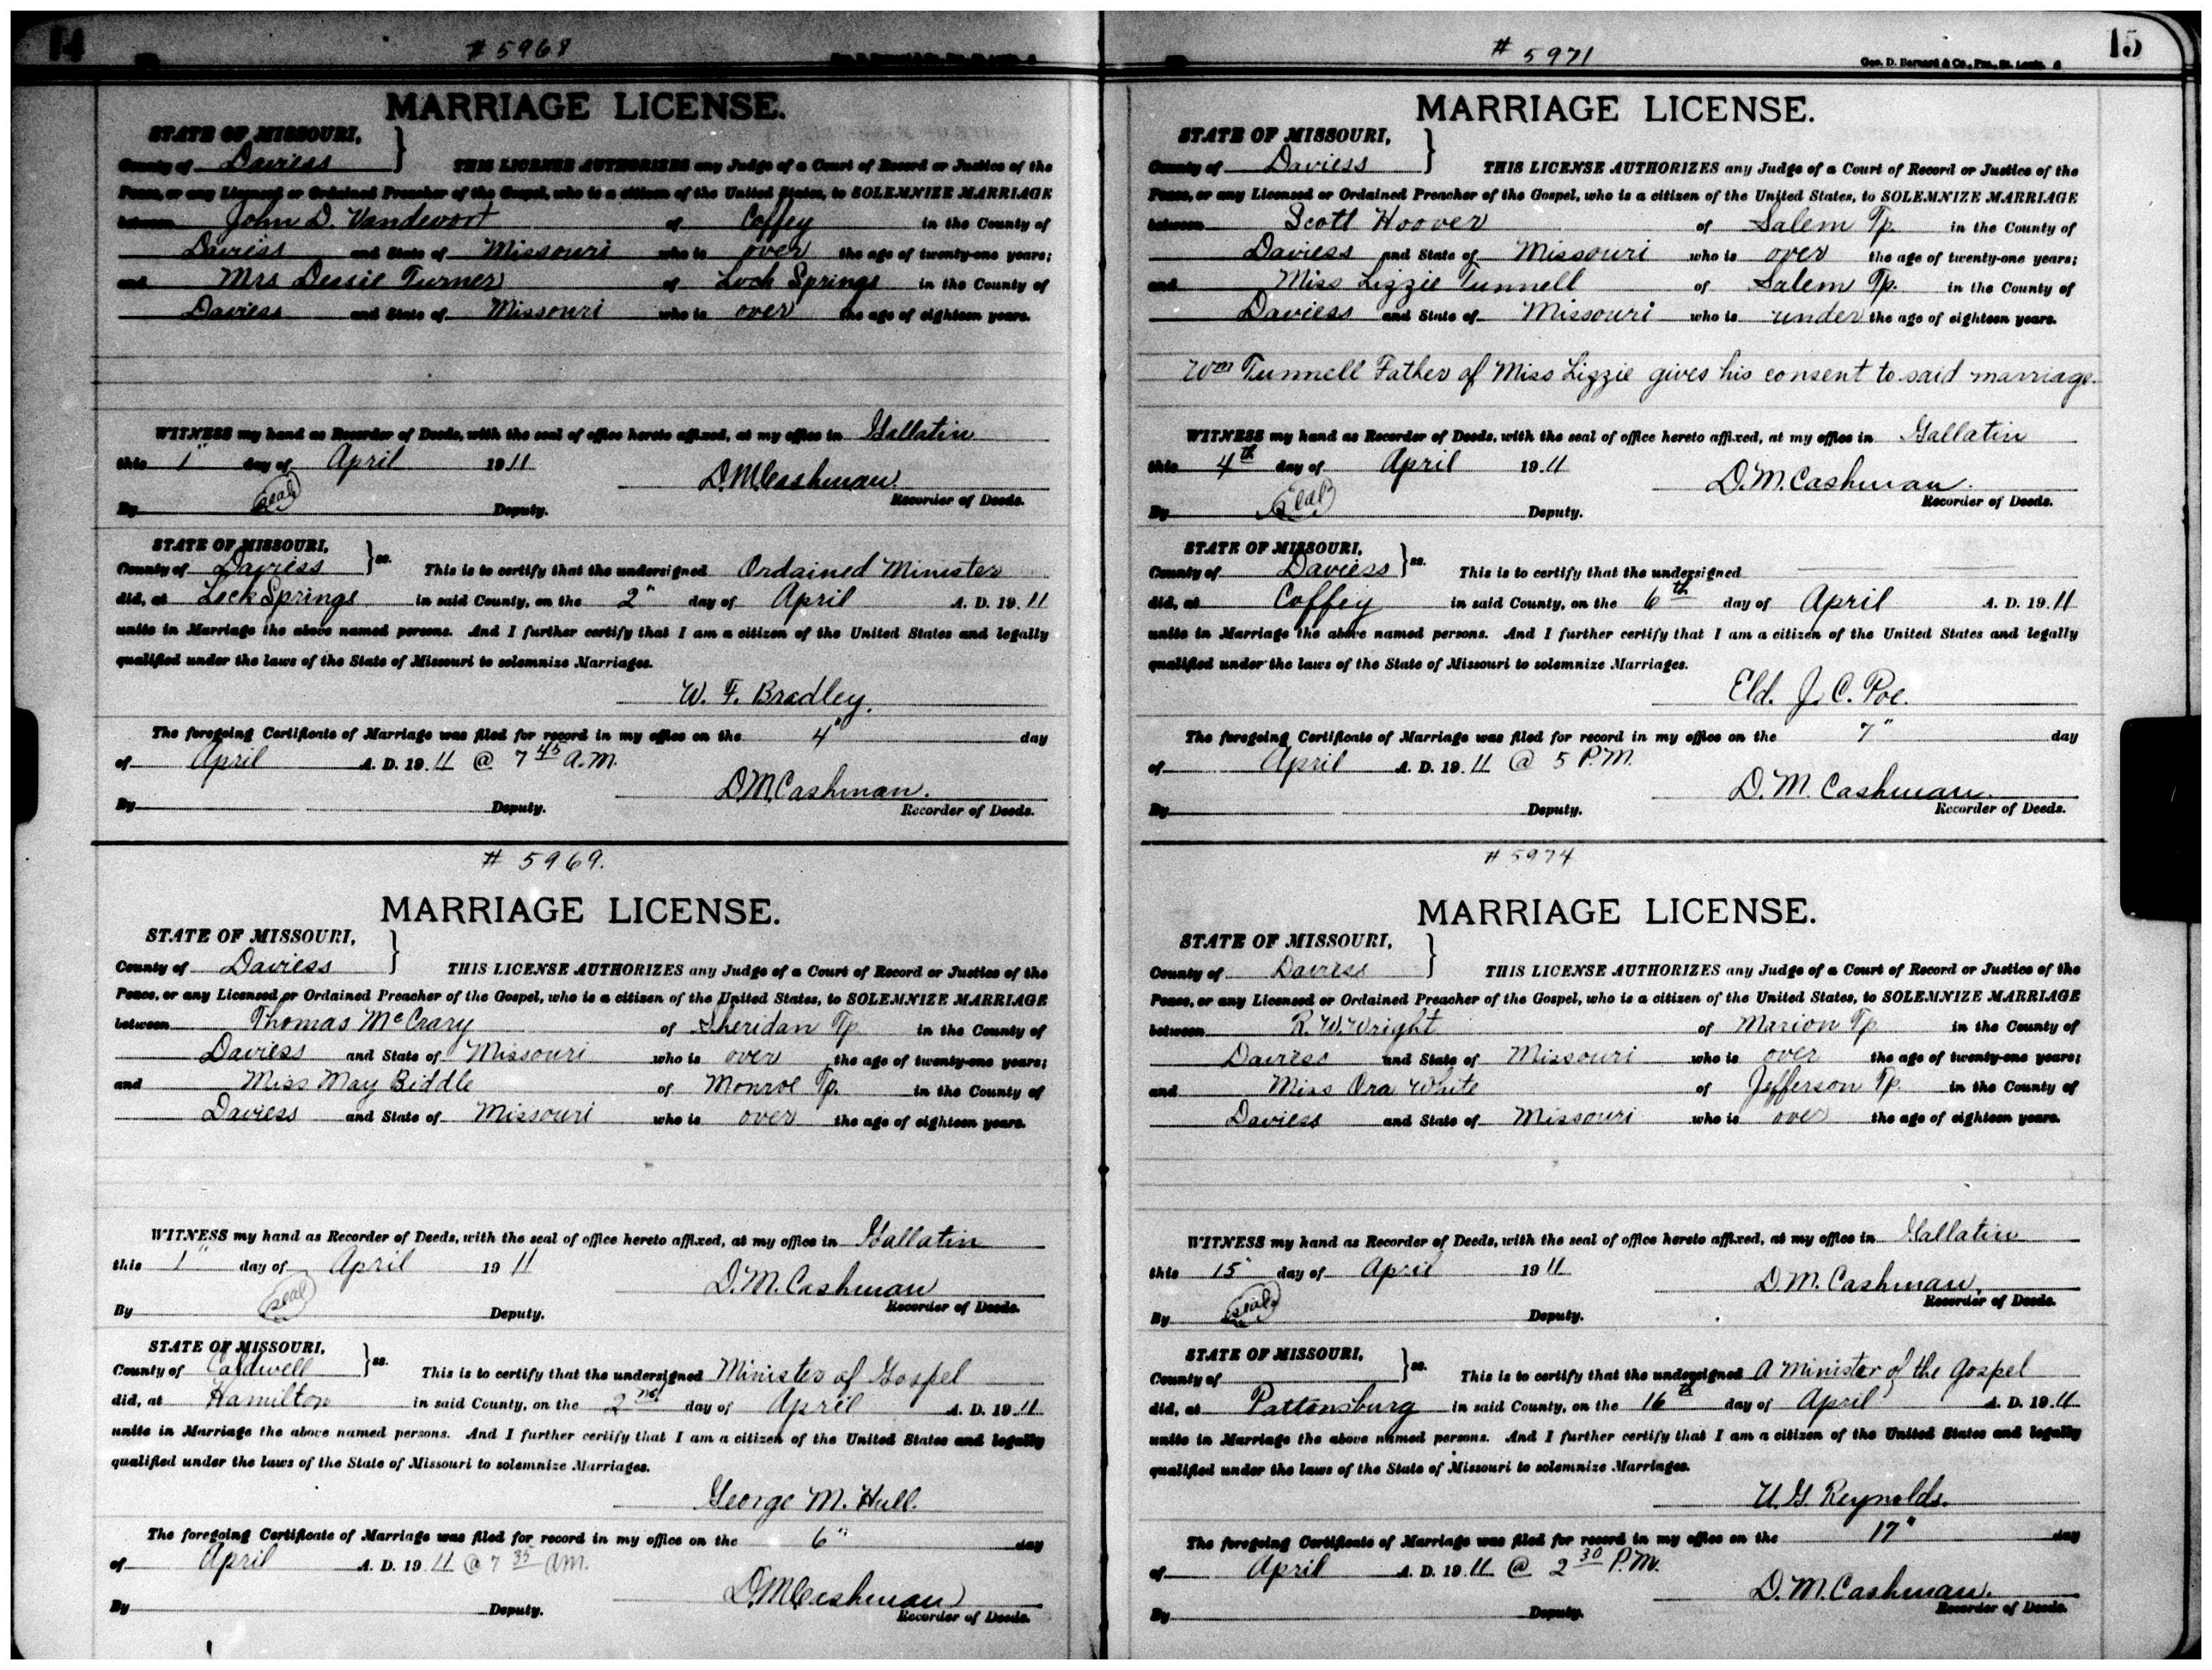 14
# 5968
MARRIAGE LICENSE.
STATE OF MISSOURI,
County of Daviess } THIS LICENSE AUTHORIZES any Judge of a Court of Record or Justice of the
Peace, or any Licensed or Ordained Preacher of the Gospel, who is a citizen of the United States, to SOLEMNIZE MARRIAGE
between John D. Vandevort of Coffey in the County of
Daviess and State of Missouri who is over the age of twenty-one years;
and Mrs Dessie Turner of Lock Springs in the County of
Daviess and State of Missouri who is over the age of eighteen years.
WITNESS my hand as Recorder of Deeds, with the seal of office hereto affixed, at my office in Gallatin
this 1" day of April 1911
D.M.Cashman
Recorder of Deeds.
By (seal) Deputy.
STATE OF MISSOURI,
County of Daviess } ss. This is to certify that the undersigned Ordained Minister
did, at Lock Springs in said County, on the 2" day of April A. D. 1911
unite in Marriage the above named persons. And I further certify that I am a citizen of the United States and legally
qualified under the laws of the State of Missouri to solemnize Marriages.
W. F. Bradley.
The foregoing Certificate of Marriage was filed for record in my office on the 4" day
of April A. D. 19.11 @ 7 45 A.M.
D.M.Cashman.
By Deputy. Recorder of Deeds.
# 5969.
MARRIAGE LICENSE.
STATE OF MISSOURI,
County of Daviess } THIS LICENSE AUTHORIZES any Judge of a Court of Record or Justice of the
Peace, or any Licensed or Ordained Preacher of the Gospel, who is a citizen of the United States, to SOLEMNIZE MARRIAGE
between Thomas McCrary of Sheridan Tp. in the County of
Daviess and State of Missouri who is over the age of twenty-one years;
and Miss May Biddle of Monroe Tp. in the County of
Daviess and State of Missouri who is over the age of eighteen years.
WITNESS my hand as Recorder of Deeds, with the seal of office hereto affixed, at my office in Gallatin
this 1" day of April 1911
D.M.Cashman
Recorder of Deeds.
By (seal) Deputy.
STATE OF MISSOURI,
County of Caldwell } ss. This is to certify that the undersigned Minister of Gospel
did, at Hamilton in said County, on the 2nd day of April A. D. 19.11
unite in Marriage the above named persons. And I further certify that I am a citizen of the United States and legally
qualified under the laws of the State of Missouri to solemnize Marriages.
George M. Hull.
The foregoing Certificate of Marriage was filed for record in my office on the 6" day
of April A. D. 19 11 @ 7 35 AM.
D.M.Cashman
By Deputy. Recorder of Deeds.
# 5971
Geo. D. Barnard & Co., Pra., St. Louis.
15
MARRIAGE LICENSE.
STATE OF MISSOURI,
County of Daviess } THIS LICENSE AUTHORIZES any Judge of a Court of Record or Justice of the
Peace, or any Licensed or Ordained Preacher of the Gospel, who is a citizen of the United States, to SOLEMNIZE MARRIAGE
between Scott Hoover of Salem Tp. in the County of
Daviess and State of Missouri who is over the age of twenty-one years;
and Miss Lizzie Tunnell of Salem Tp. in the County of
Daviess and State of Missouri who is under the age of eighteen years.
Wm Tunnell Father of Miss Lizzie gives his consent to said marriage.
WITNESS my hand as Recorder of Deeds, with the seal of office hereto affixed, at my office in Gallatin
this 4th day of April 19.11
D.M.Cashman.
Recorder of Deeds.
By (seal) Deputy.
STATE OF MISSOURI,
County of Daviess } ss. This is to certify that the undersigned
did, at Coffey in said County, on the 6th day of April A. D. 19.11
unite in Marriage the above named persons. And I further certify that I am a citizen of the United States and legally
qualified under the laws of the State of Missouri to solemnize Marriages.
Eld. J. C. Poe.
The foregoing Certificate of Marriage was filed for record in my office on the 7" day
of April A. D. 19.11 @ 5 P.M.
D. M. Cashman.
By Deputy. Recorder of Deeds.
# 5974
MARRIAGE LICENSE.
STATE OF MISSOURI,
County of Daviess } THIS LICENSE AUTHORIZES any Judge of a Court of Record or Justice of the
Peace, or any Licensed or Ordained Preacher of the Gospel, who is a citizen of the United States, to SOLEMNIZE MARRIAGE
between R. W. Wright of Marion Tp in the County of
Daviess and State of Missouri who is over the age of twenty-one years;
and Miss Ora White of Jefferson Tp. in the County of
Daviess and State of Missouri who is over the age of eighteen years.
WITNESS my hand as Recorder of Deeds, with the seal of office hereto affixed, at my office in Gallatin
this 15" day of April 1911
D.M.Cashman.
Recorder of Deeds.
By (seal) Deputy.
STATE OF MISSOURI,
County of } ss. This is to certify that the undersigned A Minister of the Gospel
did, at Pattonsburg in said County, on the 16th day of April A. D. 19.11
unite in Marriage the above named persons. And I further certify that I am a citizen of the United States and legally
qualified under the laws of the State of Missouri to solemnize Marriages.
U. G. Reynolds.
The foregoing Certificate of Marriage was filed for record in my office on the 17" day
of April A. D. 19.11 @ 2 30 P.M.
D.M.Cashman.
By Deputy. Recorder of Deeds.